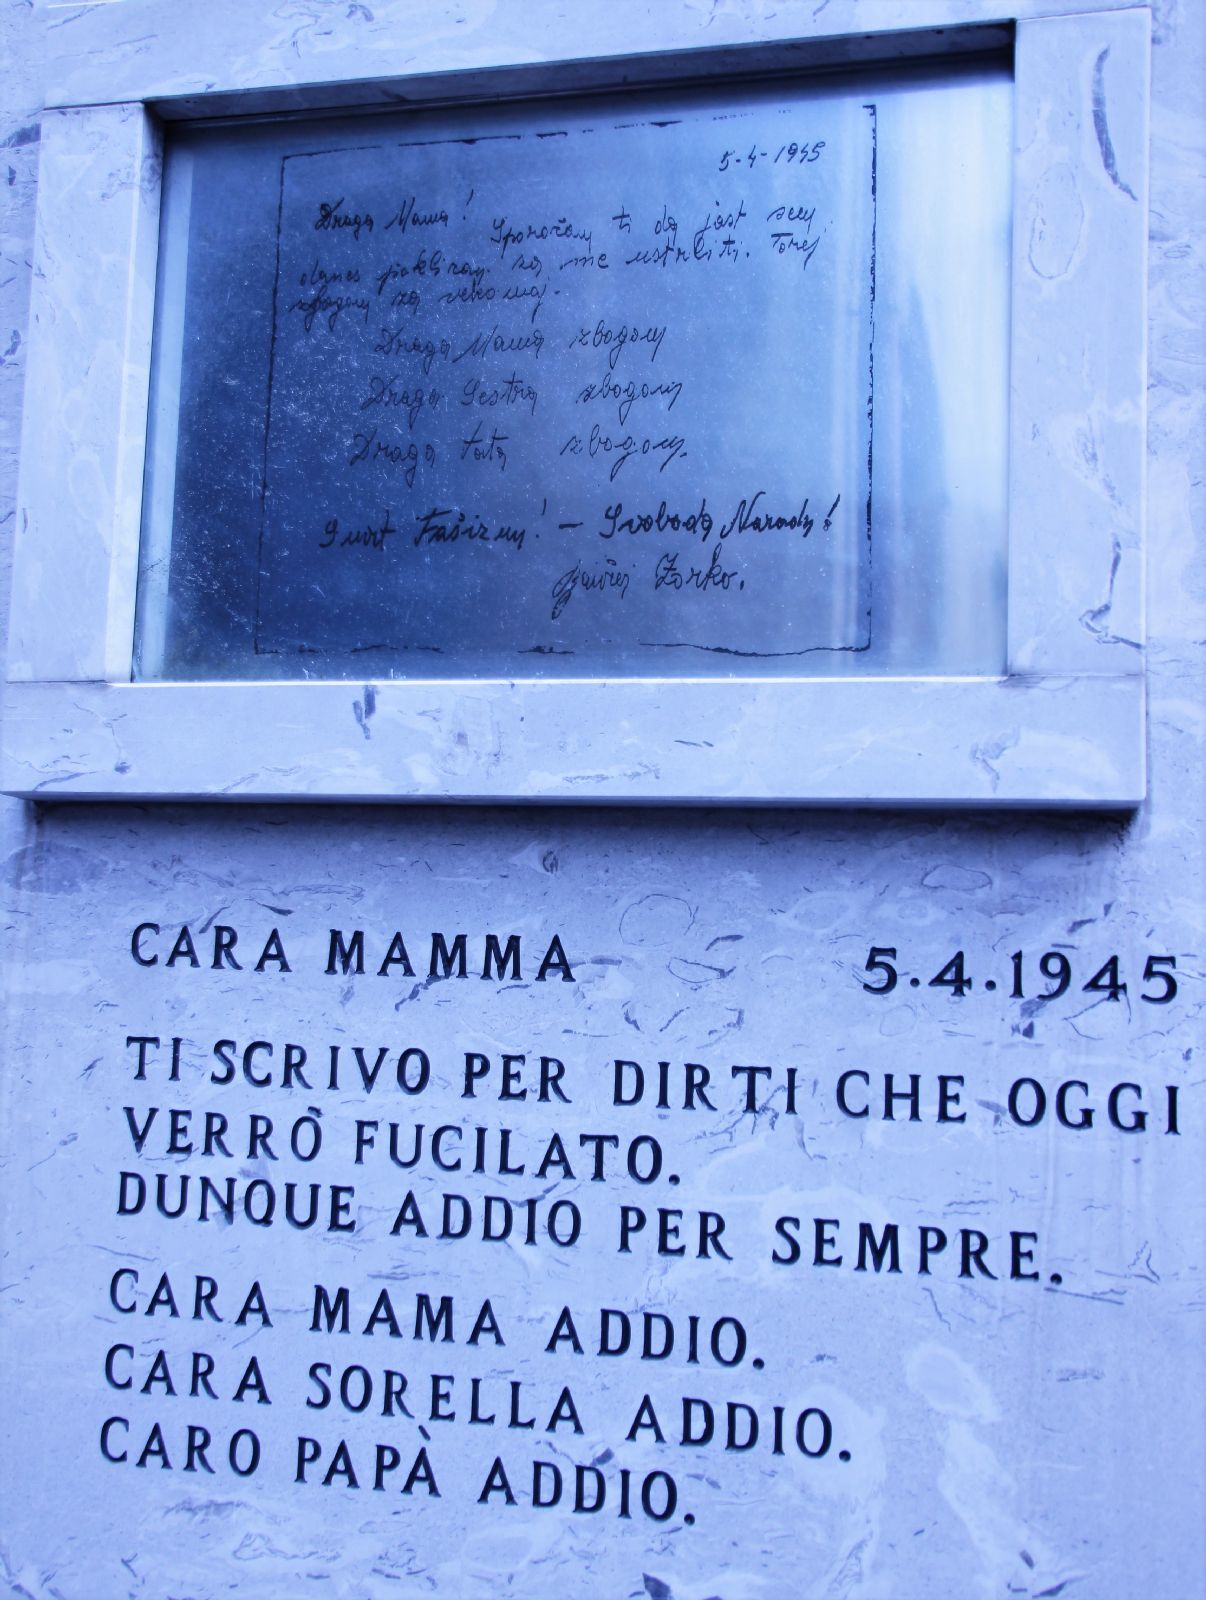 5-4-1945
Draga Mama! Sporočam ti da jast sem
danes poklican za me ustreliti. Torej
zbogom za vekomaj.
Draga Mama zbogom
Draga Sestra zbogom
Draga tata zbogom.
Smrt Fašizmu! — Svoboda Narodu!
Zorko.
CARA MAMMA 5.4.1945
TI SCRIVO PER DIRTI CHE OGGI
VERRÒ FUCILATO.
DUNQUE ADDIO PER SEMPRE.
CARA MAMA ADDIO.
CARA SORELLA ADDIO.
CARO PAPÀ ADDIO.